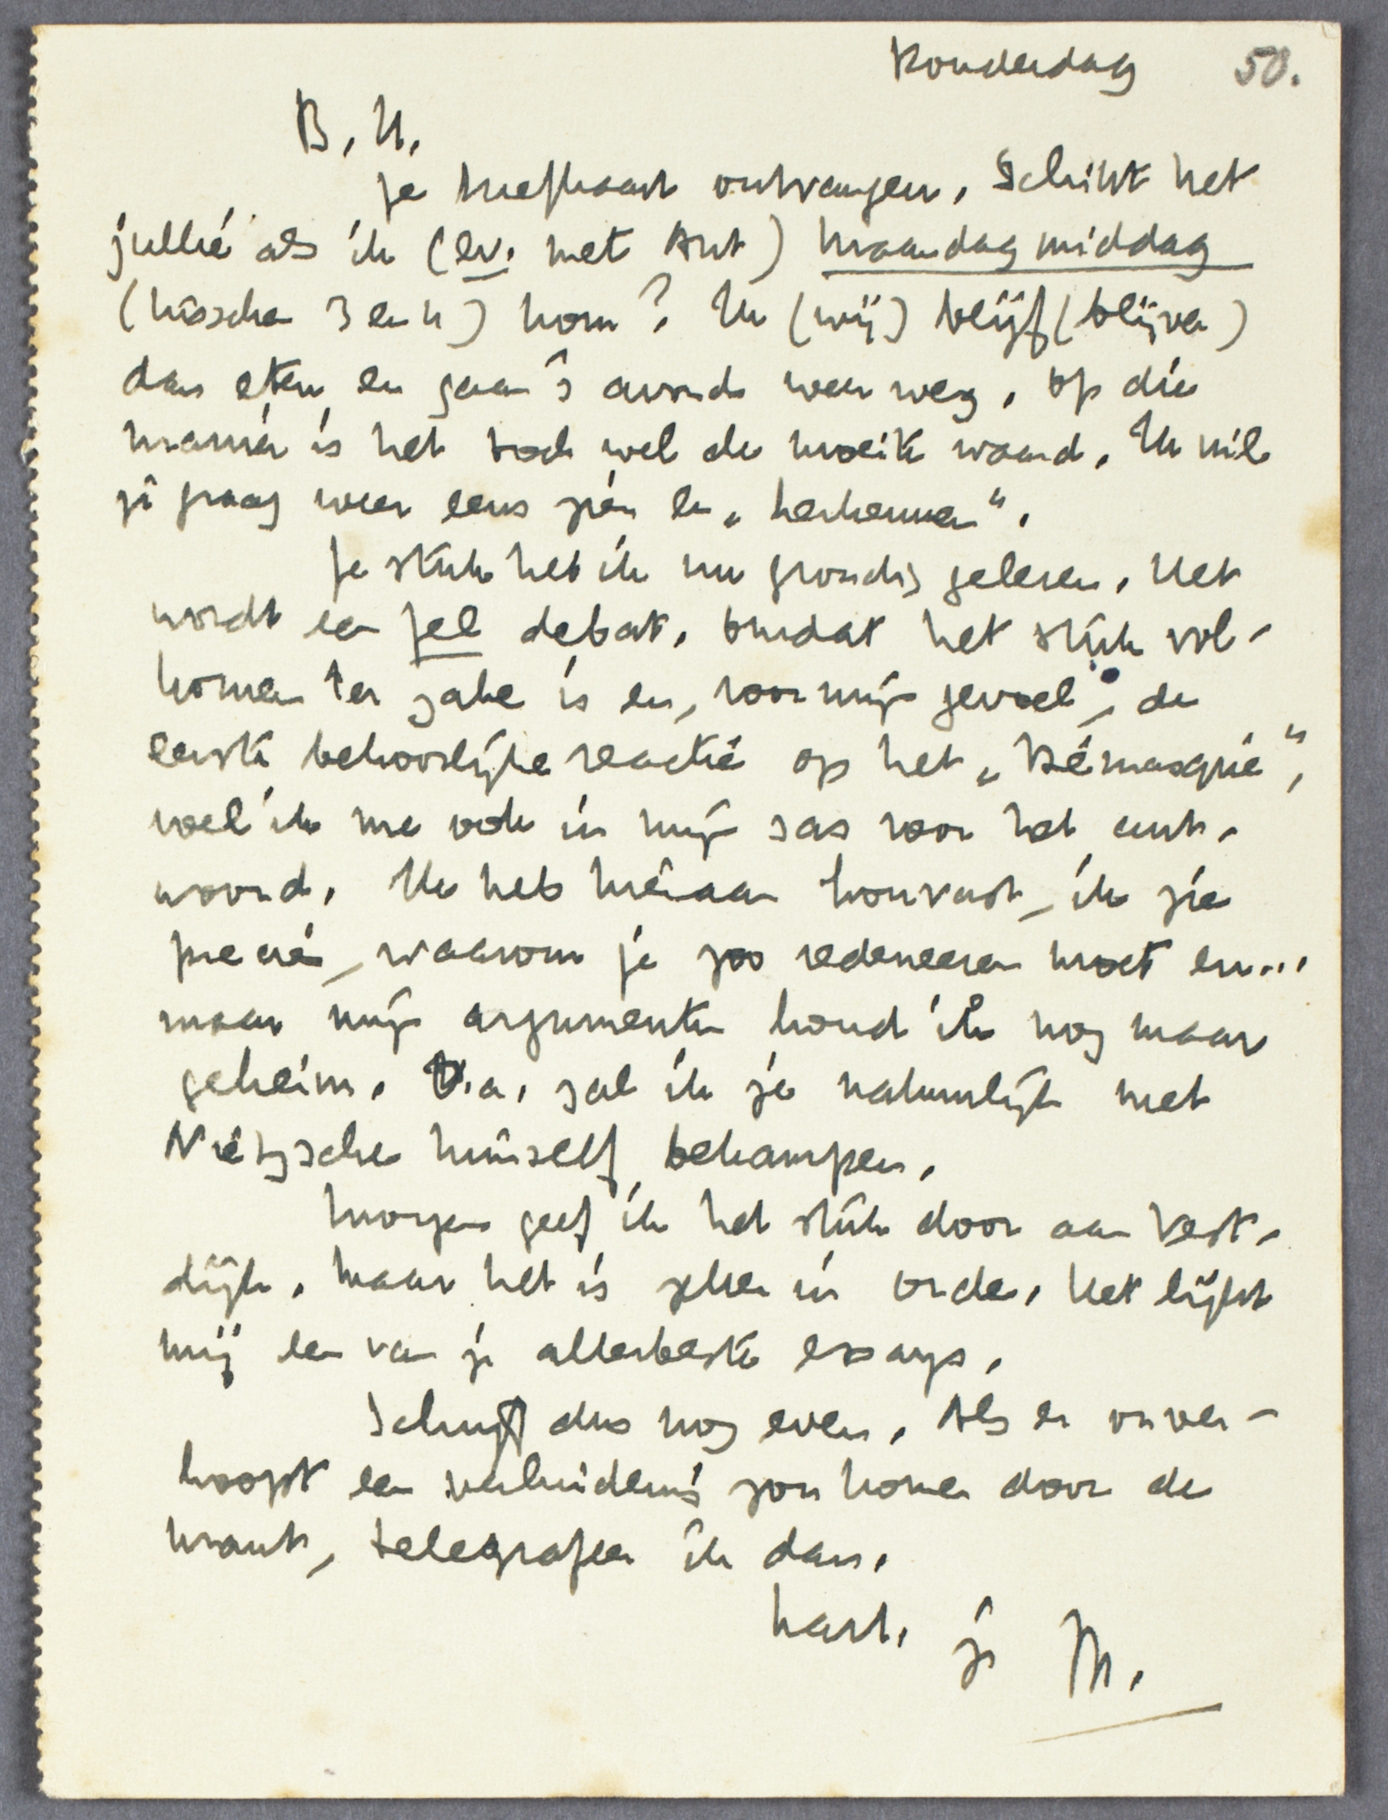 Donderdag 50.
B. H.
Je briefkaart ontvangen. Schikt het
jullie als ik (ev. met Ant) Maandagmiddag
(tusschen 3 en 4) kom? Ik (wij) blijf (blijven)
dan eten en gaan 's avonds weer weg. Op die
manier is het toch wel de moeite waard. Ik wil
je graag weer eens zien en „herkennen".
Je stuk heb ik nu grondig gelezen. Het
wordt een fel debat. Omdat het stuk vol-
komen ter zake is en, voor mijn gevoel, de
eerste behoorlijke reactie op het „Démasqué",
voel ik me ook in mijn sas voor het ant-
woord. Ik heb hieraan houvast, ik zie
precies, waarom je zoo redeneeren moet en...
maar mijn argumenten houd ik nog maar
geheim. O.a. zal ik je natuurlijk met
Nietzsche himself bekampen.
Morgen geef ik het stuk door aan Vest-
dijk. Maar het is zeker in orde. Het lijkt
mij een van je allerbeste essays.
Schrijf dus nog even. Als er onver-
hoopt een verhindernis zou komen door de
krant, telegrafeer ik dan.
hart. je M.